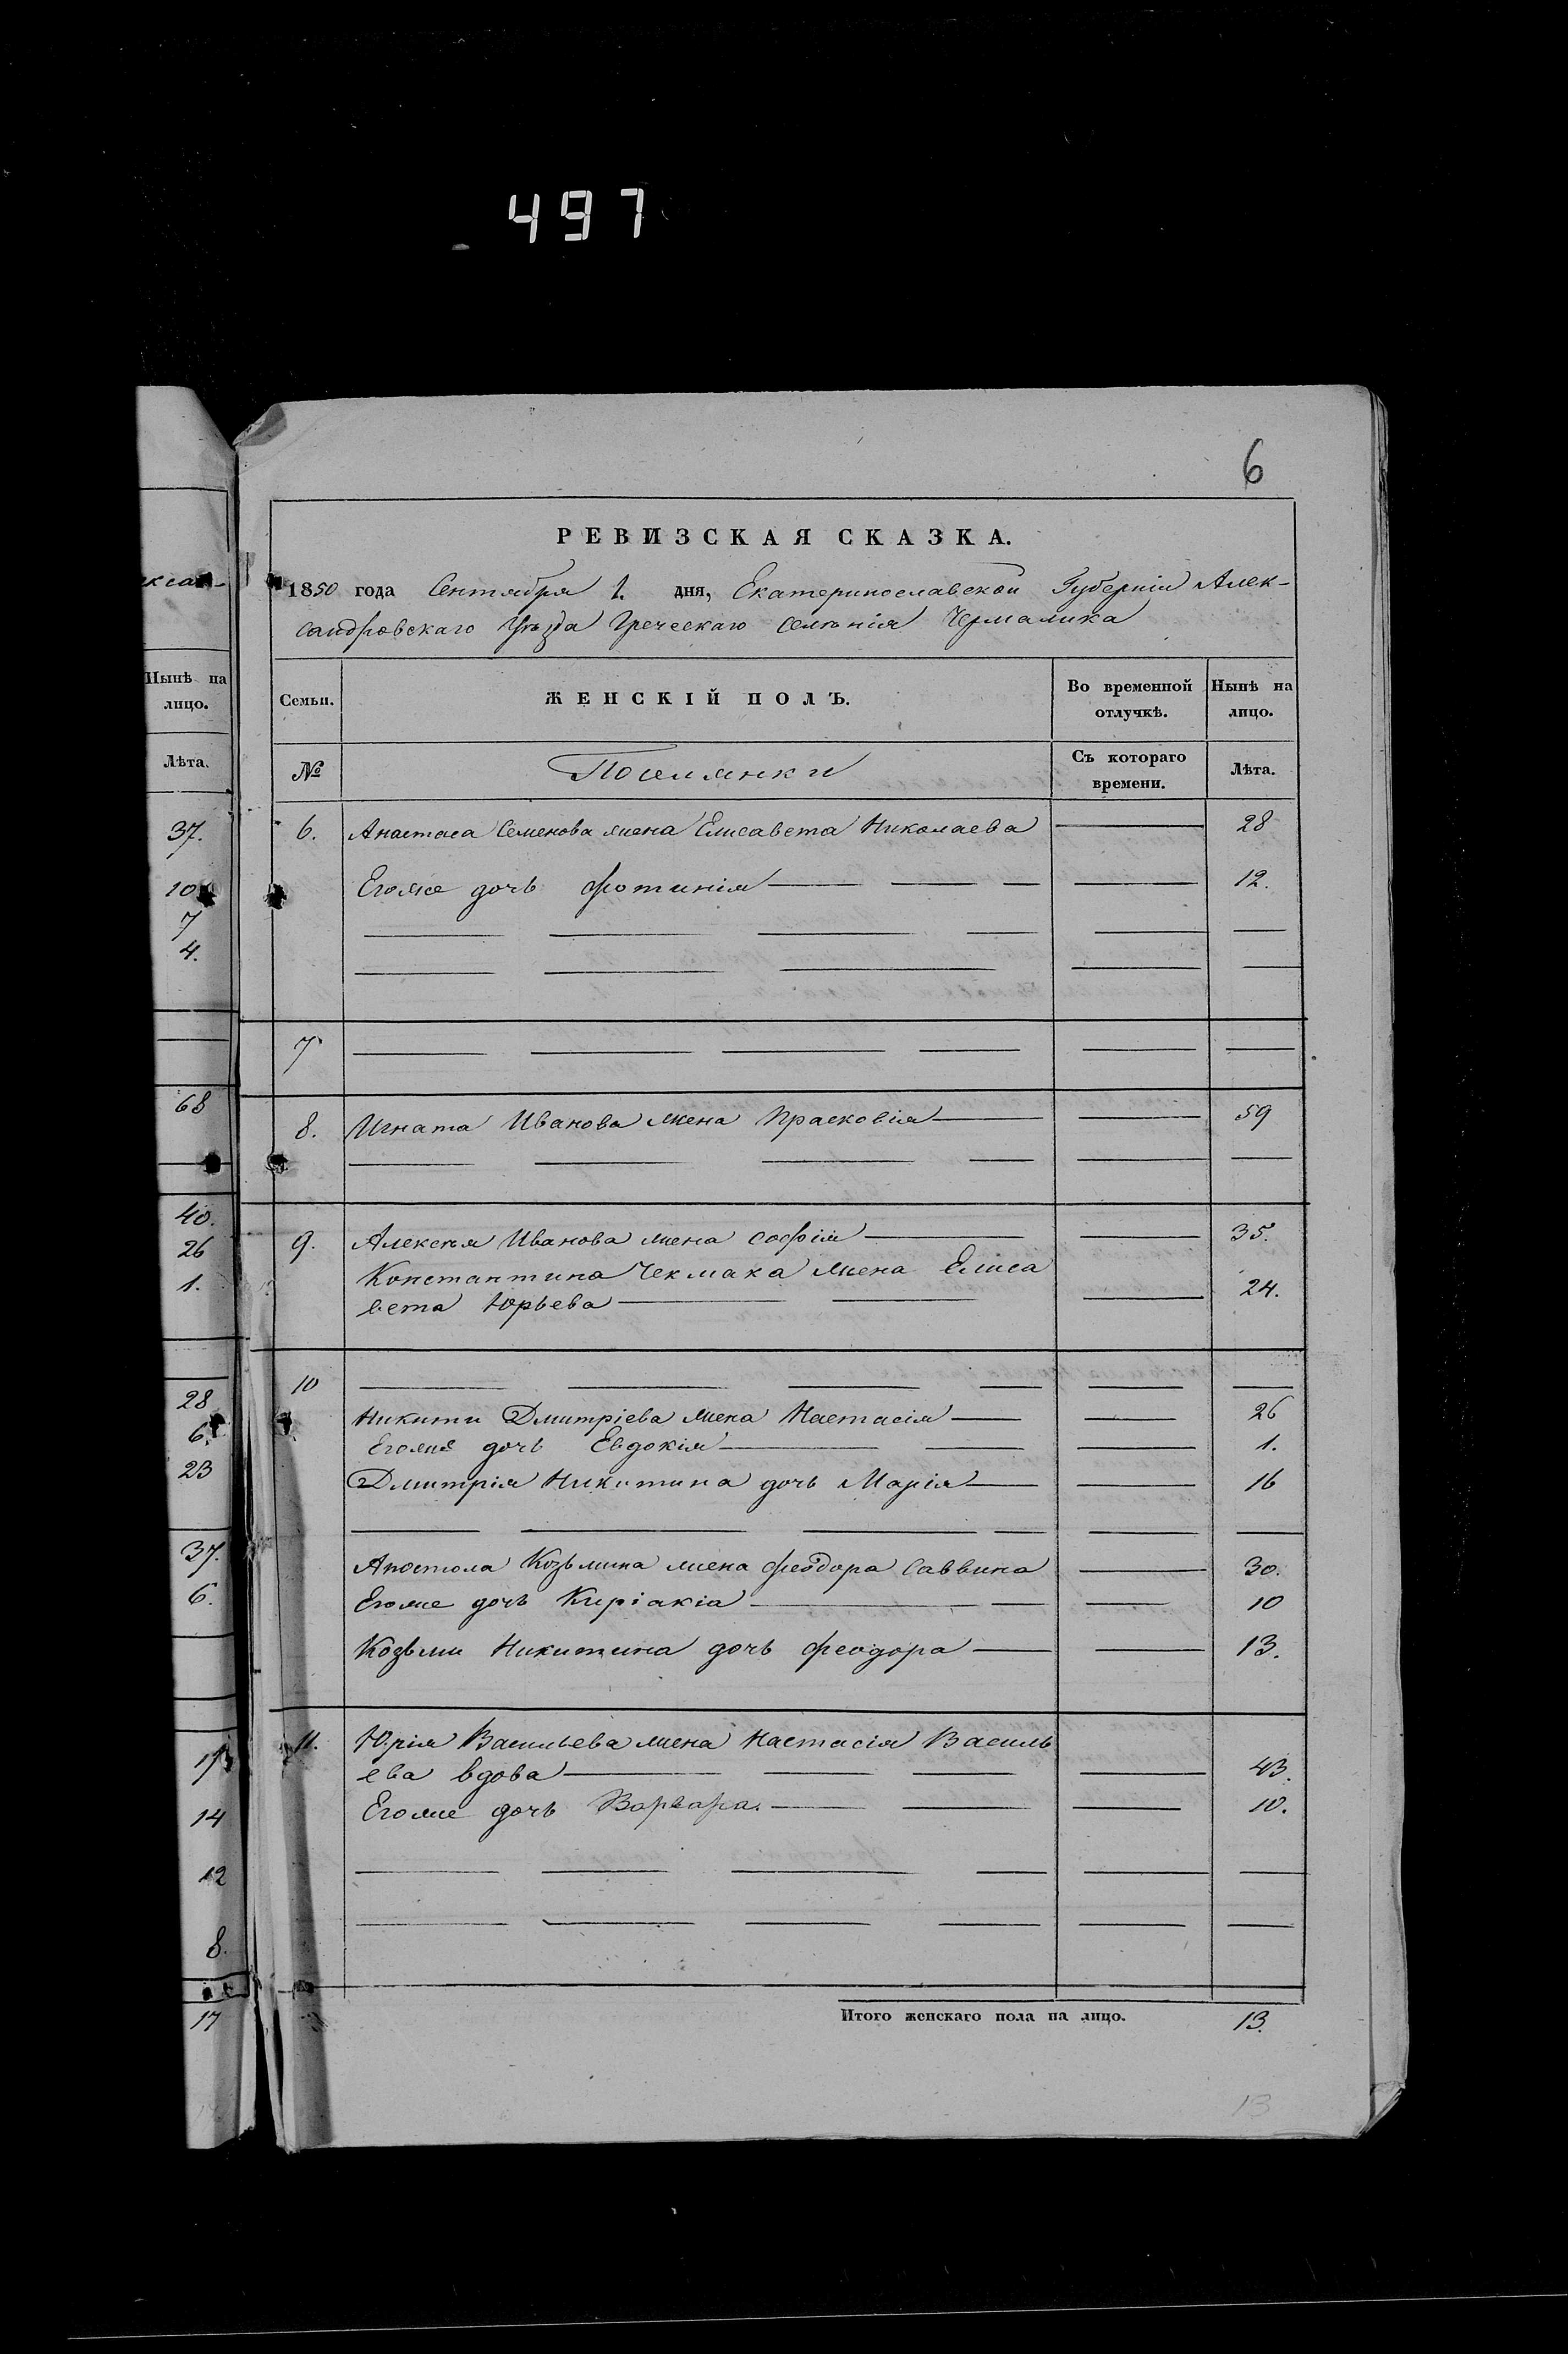 497
6
РЕВИЗСКАЯ СКАЗКА.
1850 года Сентября 1. дня, Екатеринославской Губерніи Алек-
сандровскаго Уѣзда Греческаго селѣнія Чермалика
Семьи. ЖЕНСКІЙ ПОЛЪ. Во временной отлучкѣ. Нынѣ на лицо.
№ Поселянки Съ котораго времени. Лѣта.
6. Анастаса Семенова жена Елисавета Николаева 28
Егоже дочь Фотинія 12.
7
8. Игната Иванова жена Прасковія 59
9. Алексѣя Иванова жена Софія 35.
Константина Чекмака жена Елиса
вета Юрьева 24.
10
Никиты Дмитріева жена Настасія 26
Егоже дочь Евдокія 1.
Дмитрія Никитина дочь Марія 16
Апостола Козьмина жена Феодора Саввина 30.
Егоже дочь Киріакіа 10
Козьмы Никитина дочь Феодора 13.
11. Юрія Васильева жена Настасія Василь
ева вдова 43.
Егоже дочь Варвара. 10.
Итого женскаго пола на лицо. 13.
13
ксан-
Нынѣ на
лицо.
Лѣта.
37.
10
7
4.
68
40.
26
1.
28
6.
23
37.
6.
17
14
12
8.
17